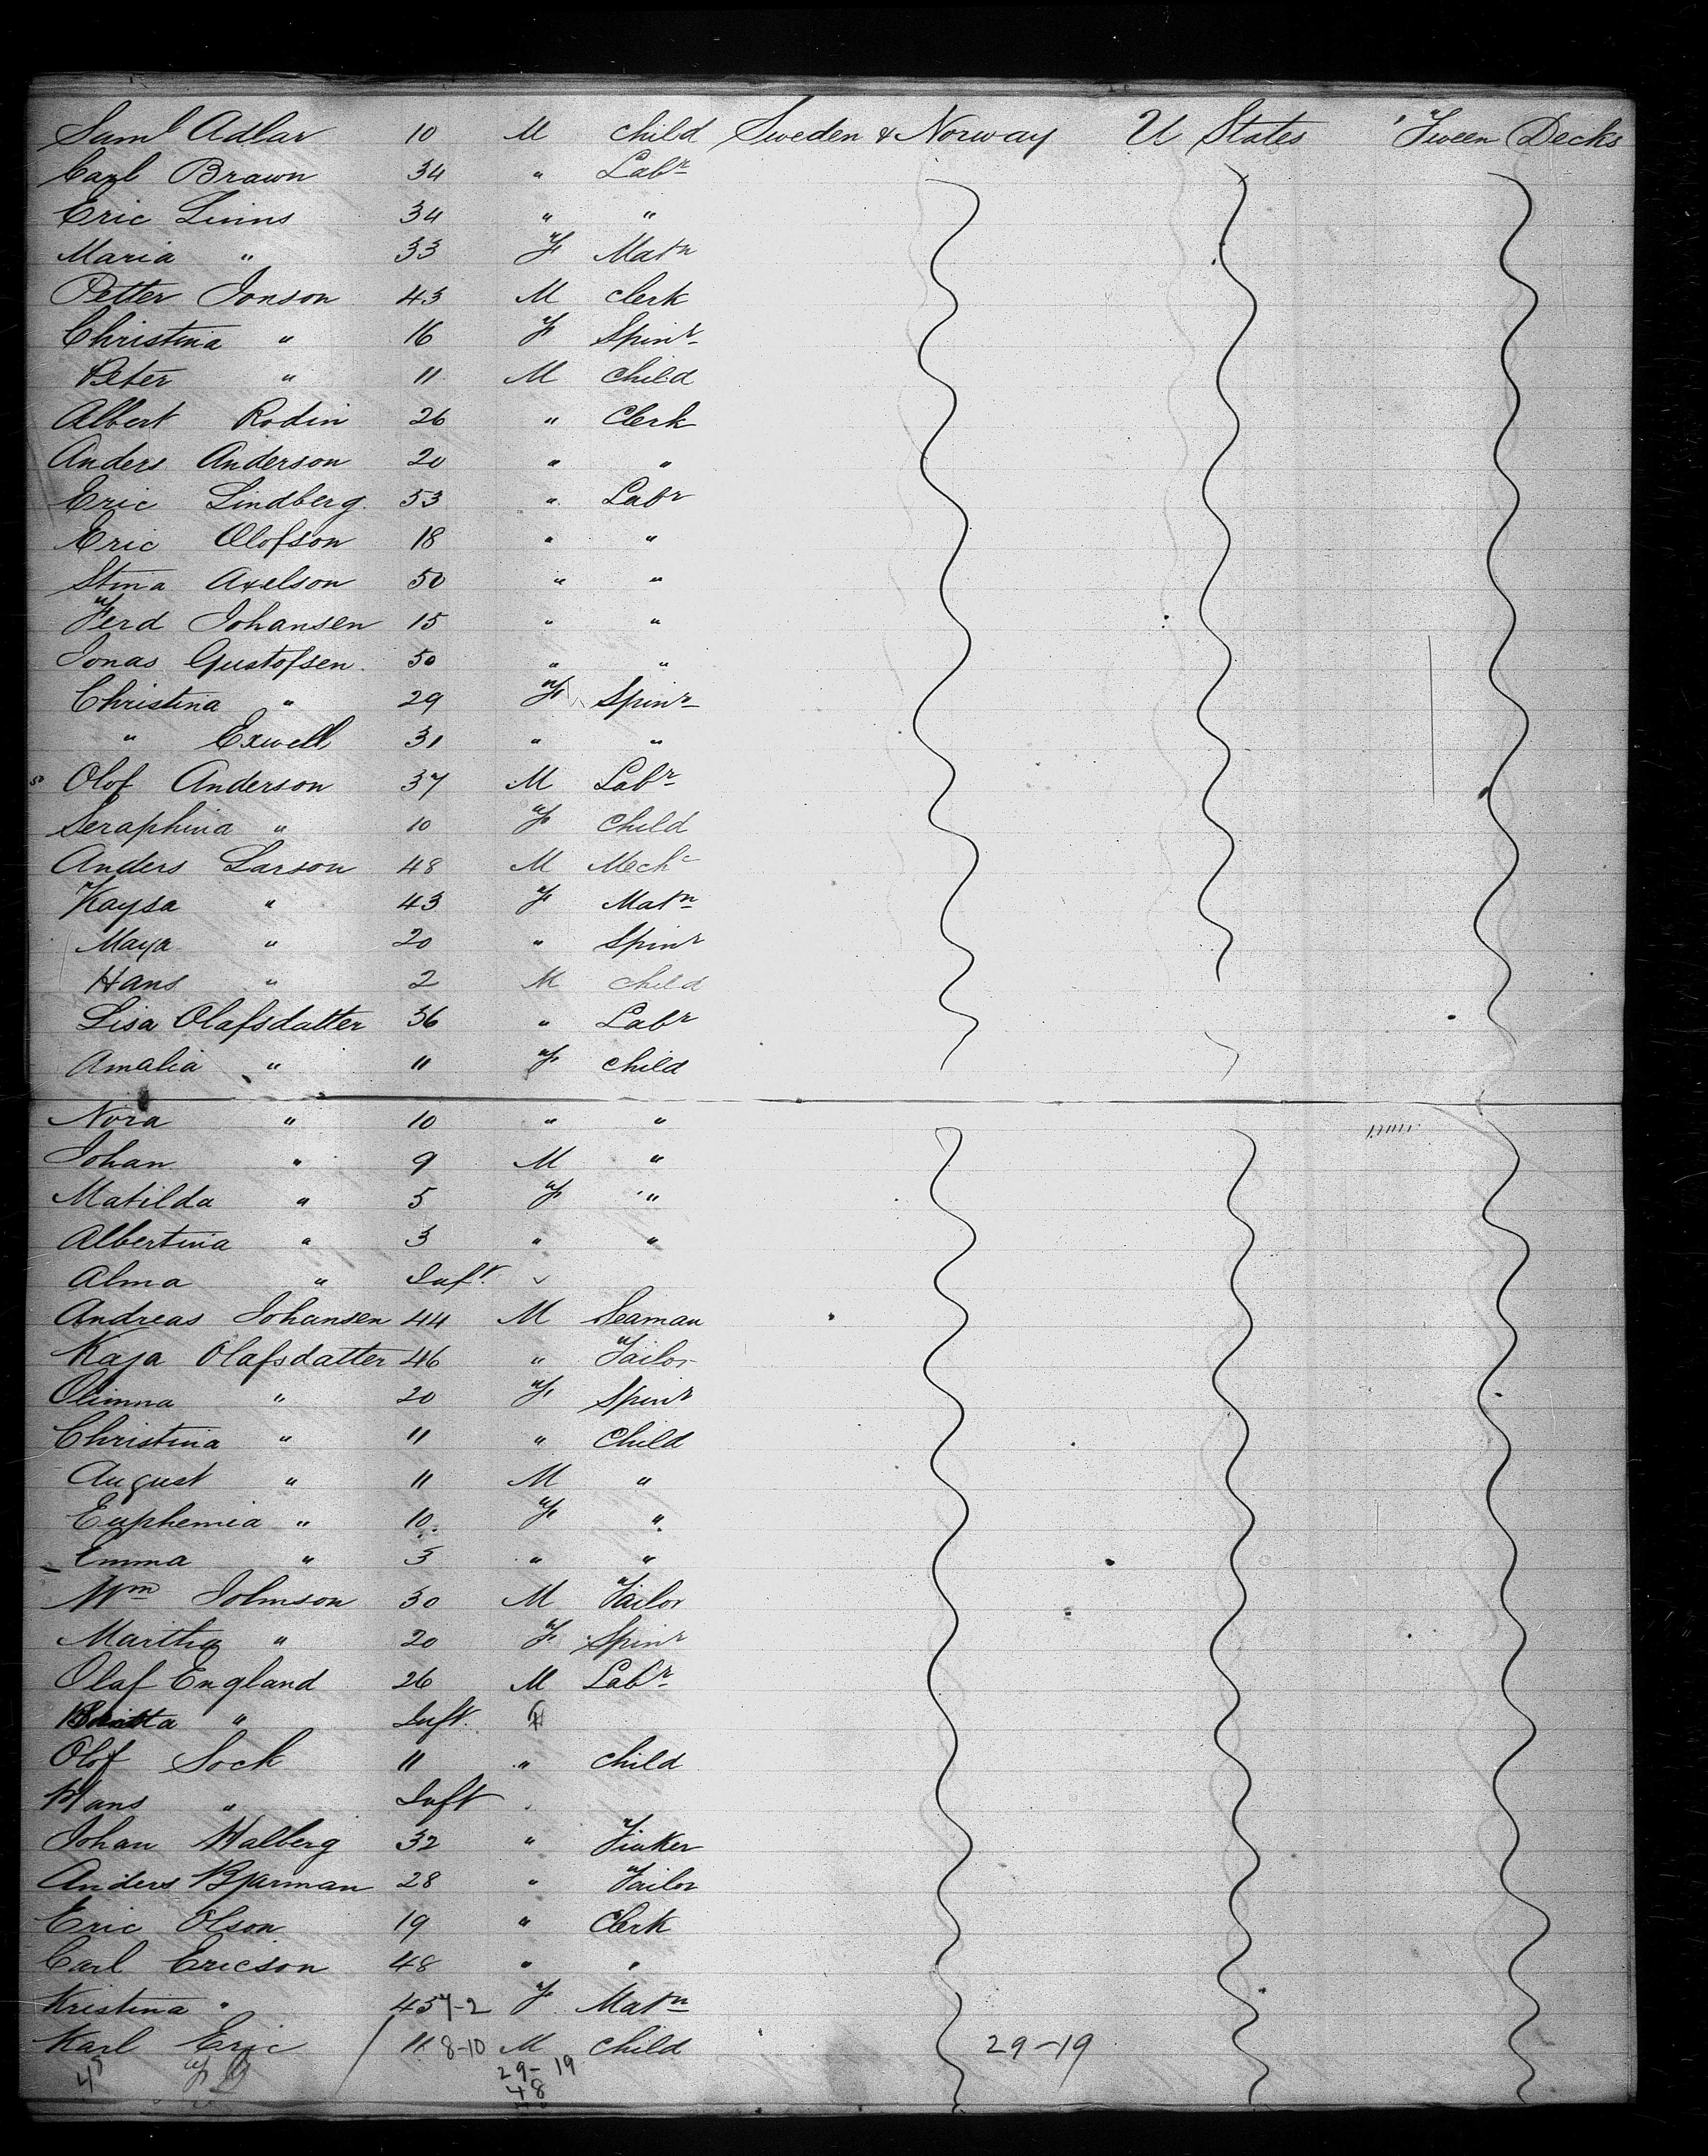 Saml Adlar 10 M Child Sweden & Norway U States 'Tween Decks
Carl Brawn 34 " Labr
Eric Linns 34 " "
Maria " 33 F Matn
Petter Jonson 43 M Clerk
Christina " 16 F Spinr
Peter " 11 M Child
Albert Rodin 26 " Clerk
Anders Anderson 20 " "
Eric Lindberg 53 " Labr
Eric Olofson 18 " "
Stina Axelson 50 " "
Ferd Johansen 15 " "
Jonas Gustofsen 50 " "
Christina " 29 F Spinr
" Exwell 31 " "
Olof Anderson 37 M Labr
Seraphina " 10 F Child
Anders Larson 48 M Mechc
Kaysa " 43 F Matn
Maya " 20 " Spinr
Hans " 2 M Child
Lisa Olafsdatter 36 " Labr
Amalia " 11 F Child
Nora " 10 " "
Johan " 9 M "
Matilda " 5 F "
Albertina " 3 " "
Alma " Inft "
Andreas Johansen 44 M Seaman
Kaja Olafsdatter 46 " Tailor
Olimna " 20 F Spinr
Christina " 11 " Child
August " 11 M "
Euphemia " 10 F "
Emma " 3 " "
Wm Johnson 30 M Tailor
Martha " 20 F Spinr
Olaf England 26 M Labr
Britta " Inft F
Olof Sock 11 " Child
Hans " Inft
Johan Walberg 32 " Tinker
Anders Bjarman 28 " Tailor
Eric Olson 19 " Clerk
Carl Ericson 48 " "
Kristina " 45 7-2 F Matn
Karl Eric 11 8-10 M Child 29-19
29-19
48